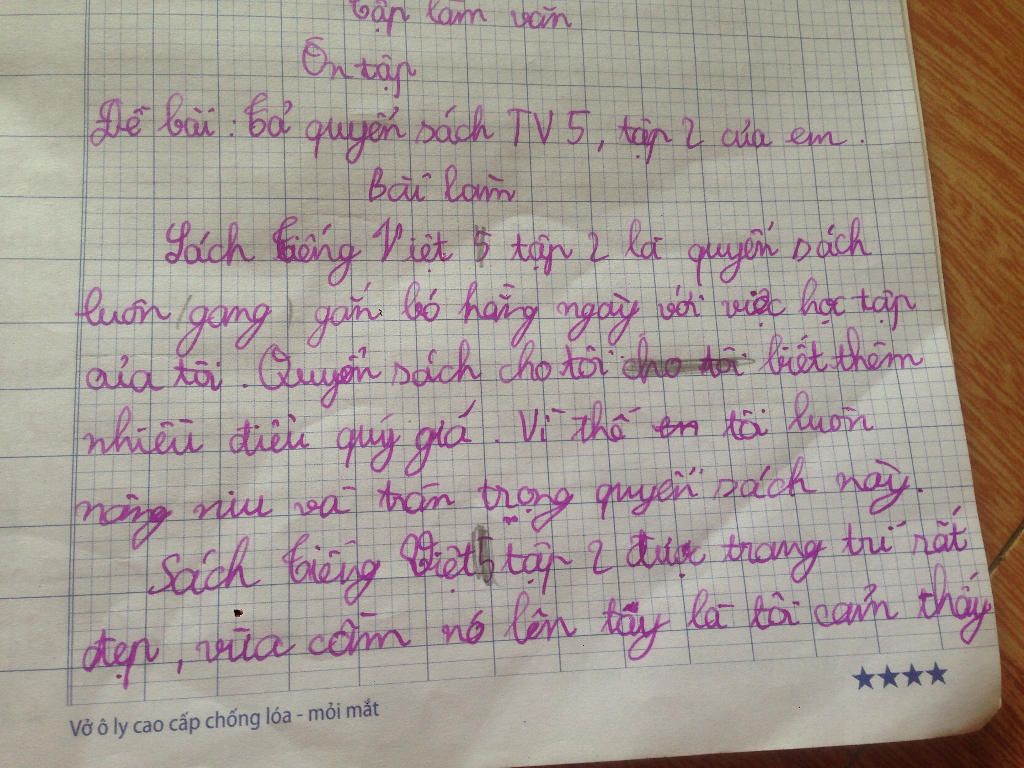 Tập làm văn
Ôn tập
Đề bài: Tả quyển sách TV5, tập 2 của em.
Bài làm
Sách Tiếng Việt 5 tập 2 là quyển sách
luôn (gang) gắn bó hằng ngày với việc học tập
của tôi. Quyển sách cho tôi cho tôi biết thêm
nhiều điều quý giá. Vì thế em tôi luôn
nâng niu và trân trọng quyển sách này.
Sách Tiếng Việt 5 tập 2 được trang trí rất
đẹp, vừa cầm nó lên tay là tôi cảm thấy
Vở ô ly cao cấp chống lóa - mỏi mắt